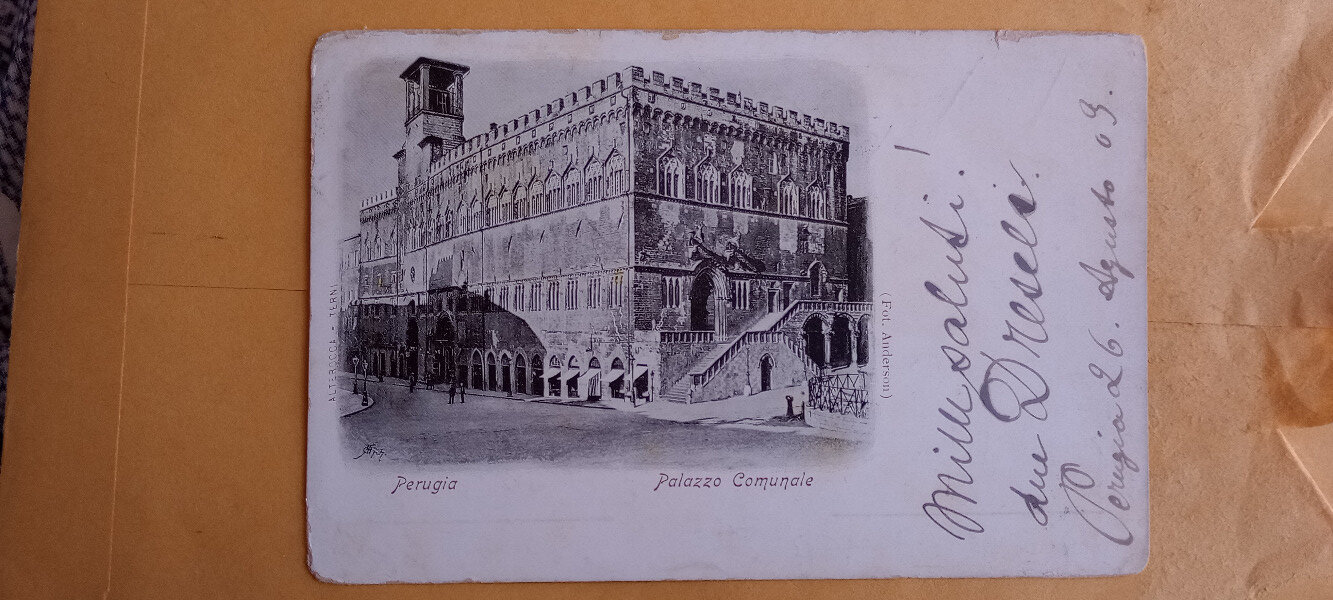 ALTEROCCA - TERNI
(Fot. Anderson)
Perugia
Palazzo Comunale
Mille saluti!
due Dreseli.
Perugia 26. Agusto 03.